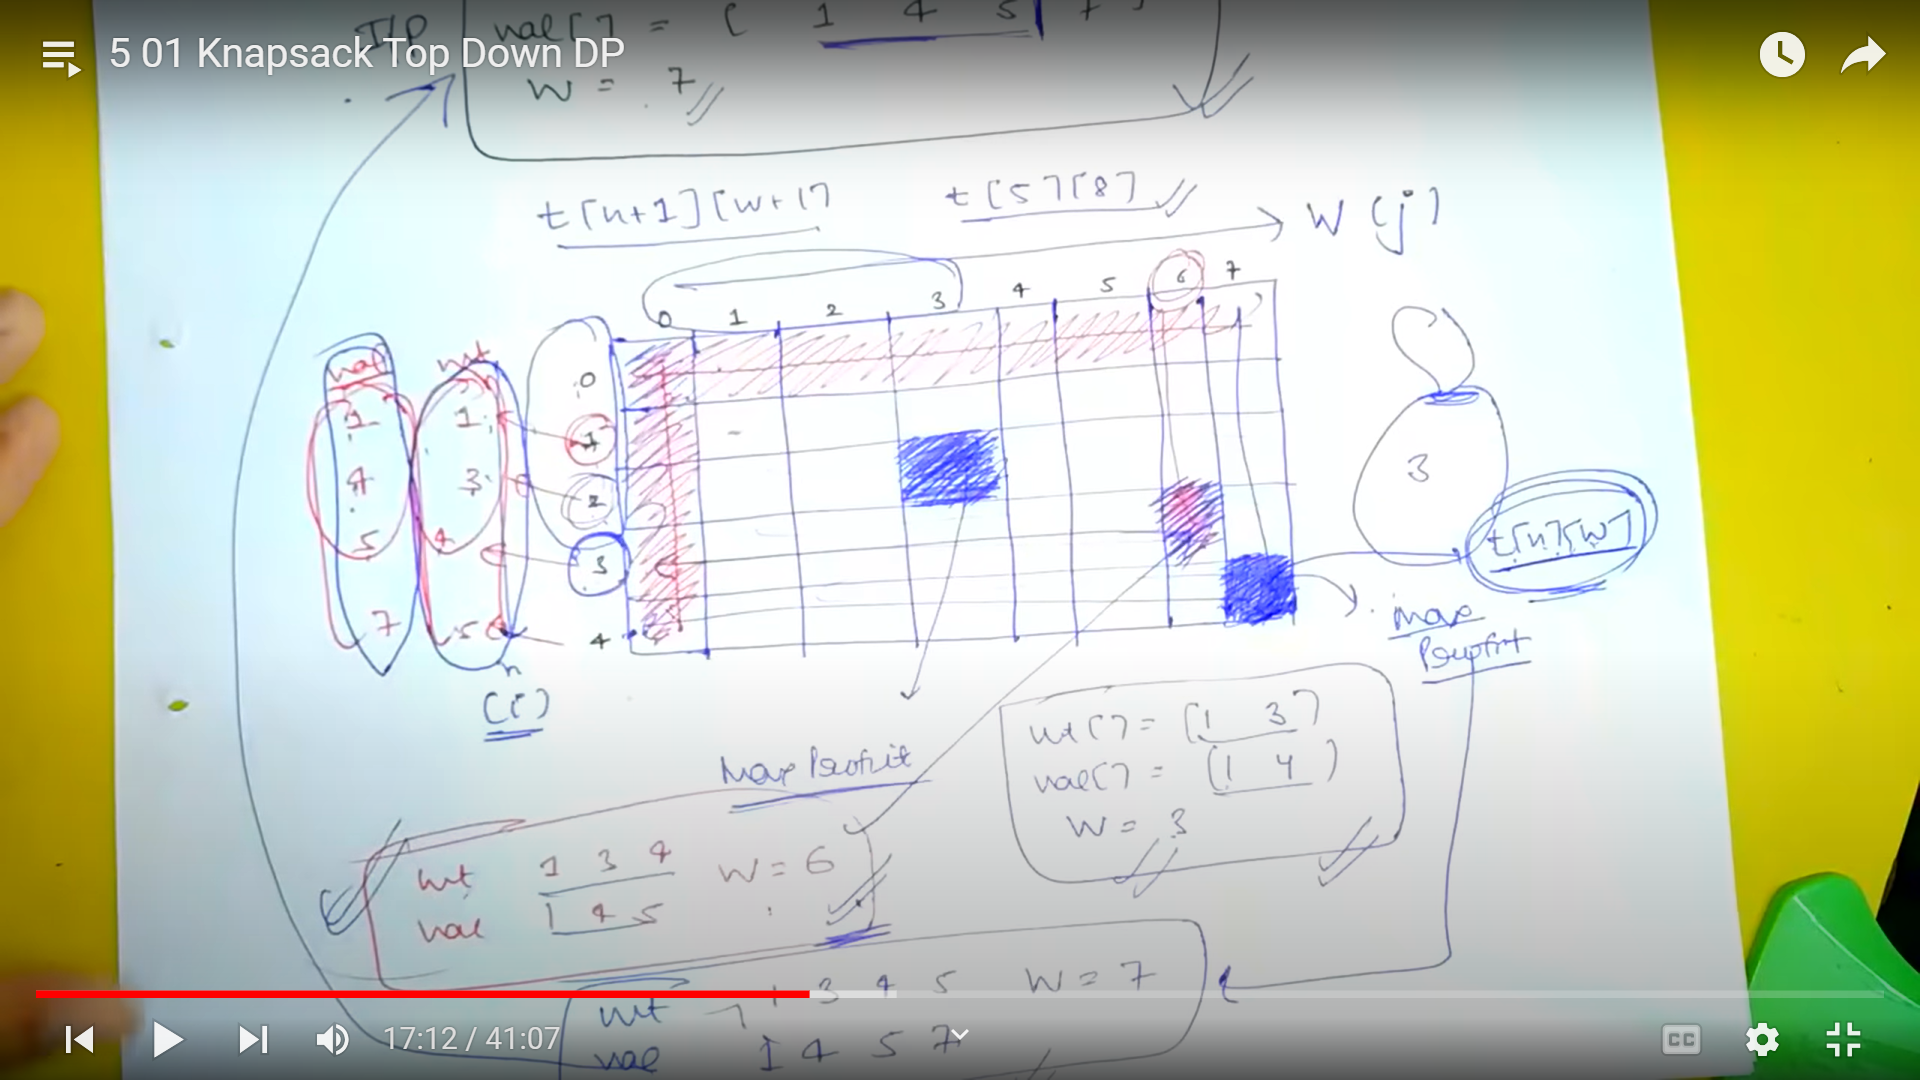 5 01 Knapsack Top Down DP
I/P val[] = [ 1 4 5 7 ]
W = 7
t[n+1][w+1] t[5][8]
W (j)
0 1 2 3 4 5 6 7
val wt
1 1 0
4 3 1
5 4 2
7 5 3
4
n
(i)
3
t[n][w]
Max
Profit
Max Profit
wt[] = [1 3]
val[] = [1 4]
W = 3
wt 1 3 4 W = 6
val 1 4 5
wt 1 3 4 5 W = 7
val 1 4 5 7
17:12 / 41:07
CC